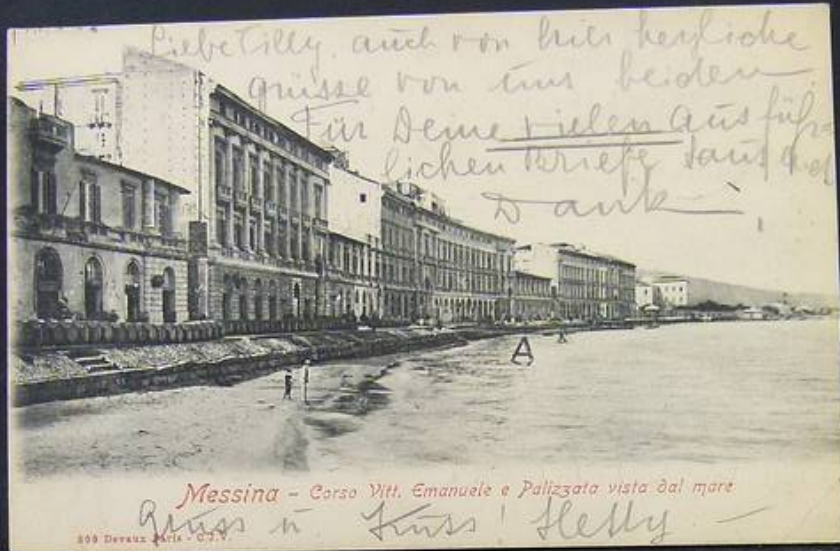 Liebe Tilly, auch von hier herzliche
grüsse von uns beiden
Für Deine vielen ausführ-
lichen Briefe
Dank
A
Messina - Corso Vitt. Emanuele e Palizzata vista dal mare
Gruss u Kuss! Hetty
Devaux Paris - C.J.V.